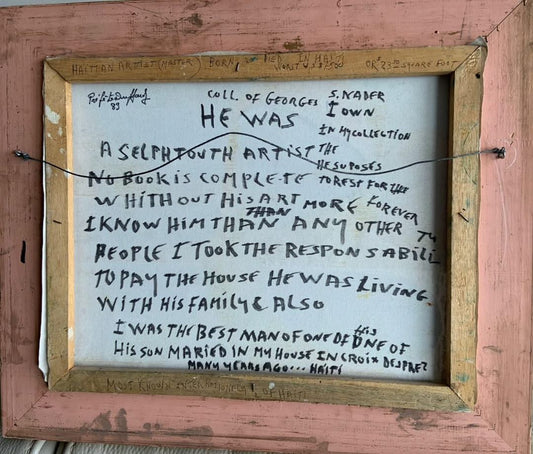 HAITIAN ARTIST (MASTER) BORN DIED IN HAITI
WORST U.S $7500 OR 23TH SQUARE FOOT
89
COLL. OF GEORGES S. NADER
HE WAS I OWN
IN MY COLLECTION
A SELPHTOUTH ARTIST THE
HE SUPOSES
NO BOOK IS COMPLETE TO REST FOR THE
WHITHOUT HIS ART MORE FOREVER
THAN
I KNOW HIM THAN ANY OTHER
PEOPLE I TOOK THE RESPONSABILI TY
TO PAY THE HOUSE HE WAS LIVING
WITH HIS FAMILY & ALSO
I WAS THE BEST MAN OF ONE OF HIS ONE OF
HIS SON MARIED IN MY HOUSE IN CROIX DESPREZ
MANY YEARS AGO... HAITI
MOST KNOWN INTERNATIONELY OF HAITI